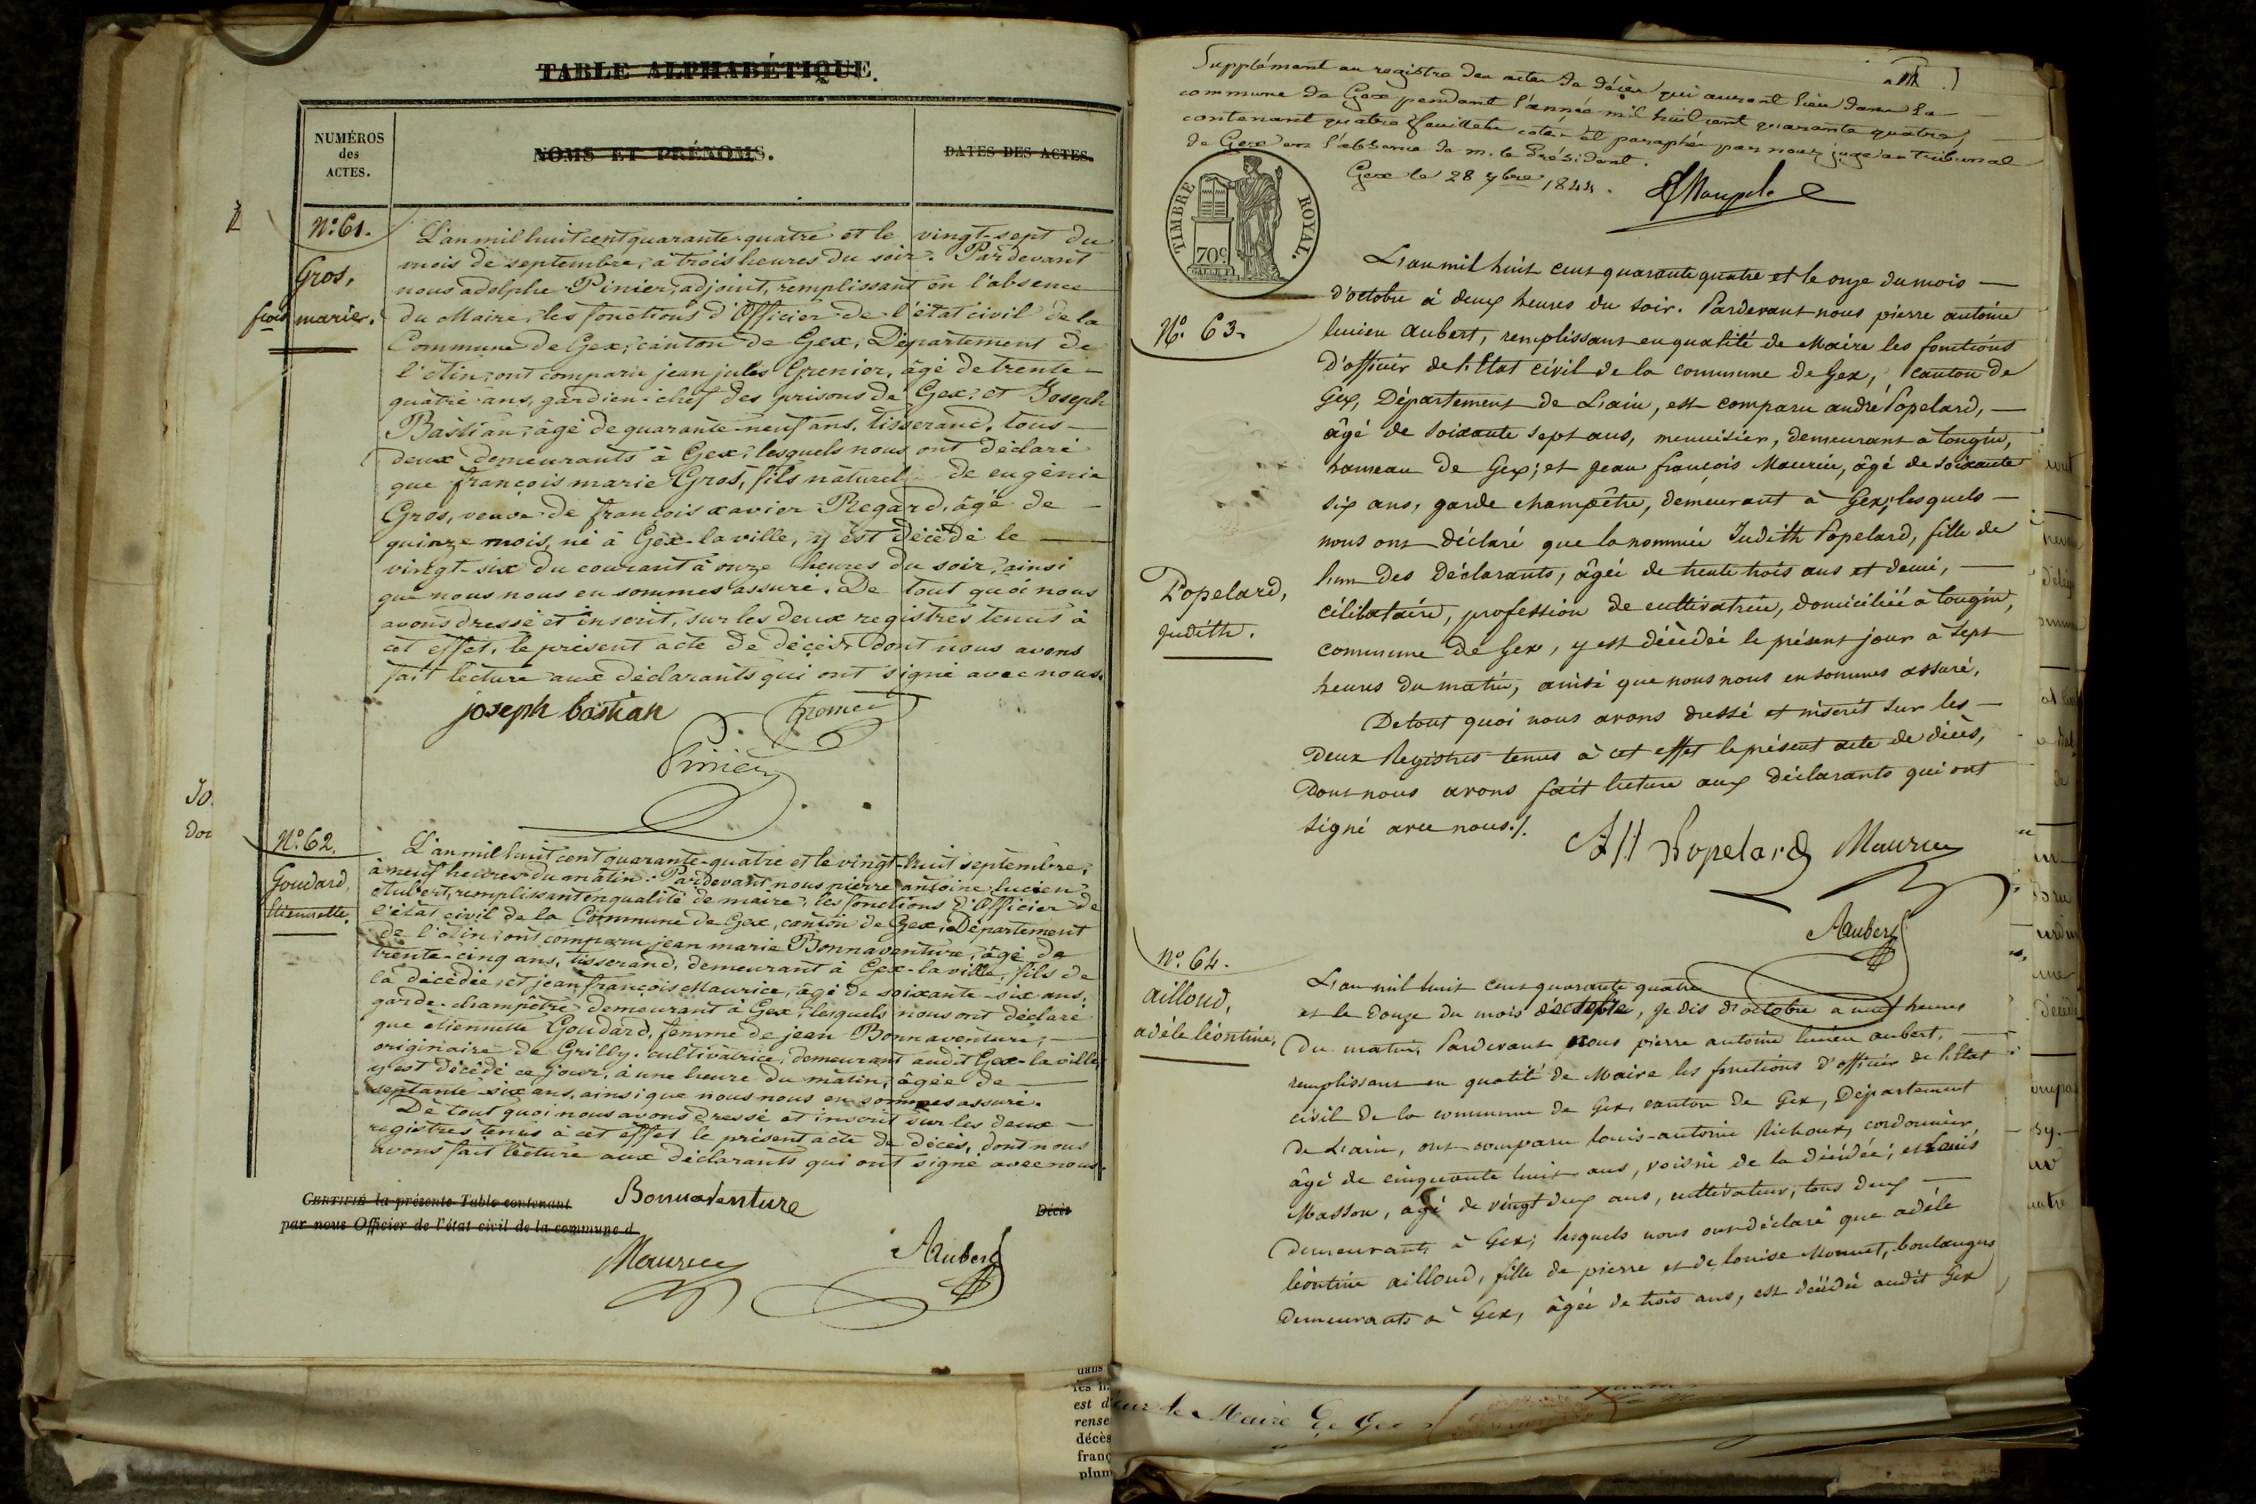 TABLE ALPHABÉTIQUE.
NUMÉROS
des
ACTES.
NOMS ET PRÉNOMS.
DATES DES ACTES.
N.° 61.
Gros,
fcois marie.
L'an mil huit cent quarante-quatre et le vingt-sept du
mois de septembre, à trois heures du soir. Pardevant
nous adolphe Pinier, adjoint, remplissant en l'absence
du Maire, les fonctions d'Officier de l'état civil de la
Commune de Gex, canton de Gex, Département de
l'Ain, ont comparu jean jules Grenier, âgé de trente-
quatre ans, gardien-chef des prisons de Gex, et Joseph
Bastian, âgé de quarante-neuf ans, tisserand, tous
deux demeurants à Gex, lesquels nous ont déclaré
que françois marie Gros, fils naturel de eugénie
Gros, veuve de françois xavier Regard, âgé de
quinze mois, né à Gex-la-ville, y est décédé le
vingt-six du courant à onze heures du soir, ainsi
que nous nous en sommes assuré. De tout quoi nous
avons dressé et inscrit, sur les deux registres tenus à
cet effet, le présent acte de décès, dont nous avons
fait lecture aux déclarants qui ont signé avec nous.
joseph bastian
Pinier
N.° 62.
Goudard,
Etiennette.
L'an mil huit cent quarante-quatre et le vingt-huit septembre,
à neuf heures du matin. Pardevant nous pierre antoine lucien
Aubert, remplissant en qualité de maire, les fonctions d'Officier de
l'état civil de la Commune de Gex, canton de Gex, Département
de l'Ain, ont comparu jean marie Bonnaventure, âgé de
trente-cinq ans, tisserand, demeurant à Gex-la-ville, fils de
la décédée, et jean françois Maurice, âgé de soixante-six ans,
garde-champêtre demeurant à Gex, lesquels nous ont déclaré
que étiennette Goudard, femme de jean Bonnaventure,
originaire de Grilly, cultivatrice, demeurant audit Gex-la-ville,
y est décédé ce jour, à une heure du matin, âgée de
septante-six ans, ainsi que nous nous en sommes assuré.
De tout quoi nous avons dressé et inscrit sur les deux
registres tenus à cet effet le présent acte de décès, dont nous
avons fait lecture aux déclarants qui ont signé avec nous.
CERTIFIÉ la présente Table contenant
Décès
par nous Officier de l'état civil de la commune d
Bonnaventure
Maurice
Aubert
Supplément au registre des actes de décès qui auront lieu dans la
commune de Gex pendant l'année mil huit cent quarante quatre,
contenant quatre feuillets coté et paraphé par nous juge au Tribunal
de Gex en l'absence de m. le Président.
Gex le 28 7bre 1844.
TIMBRE ROYAL.
70c.
N.° 63.
Popelard,
Judith.
L'an mil huit cent quarante quatre et le onze du mois
d'octobre à deux heures du soir. Pardevant nous pierre antoine
lucien aubert, remplissant en qualité de Maire les fonctions
d'officier de l'Etat civil de la commune de Gex, canton de
Gex, Département de L'ain, est comparu andré Popelard,
âgé de soixante sept ans, menuisier, demeurant à tougin,
hameau de Gex; et jean françois Maurice, âgé de soixante
six ans, garde champêtre, demeurant à Gex, lesquels
nous ont déclaré que la nommée Judith Popelard, fille de
l'un des Déclarants, âgée de trente trois ans et demi,
célibataire, profession de cultivatrice, domiciliée à tougin,
commune de Gex, y est décédée le présent jour à sept
heures du matin, ainsi que nous nous en sommes assuré.
De tout quoi nous avons dressé et inscrit sur les
deux Registres tenus à cet effet le présent acte de décès,
Dont nous avons fait lecture aux déclarants qui ont
signé avec nous./.
Popelard Maurice
Aubert
N.° 64.
ailloud,
adéle léontine,
L'an mil huit cent quarante quatre
et le douze du mois d'octobre, je dis d'octobre à neuf heures
Du matin, Pardevant nous pierre antoine lucien aubert,
remplissant en qualité de Maire les fonctions d'officier de l'Etat
civil de la commune de Gex, canton de Gex, Département
de L'ain, ont comparu louis-antoine Richoux, cordonnier,
âgé de cinquante huit ans, voisin de la décédée; et Louis
Masson, âgé de vingt deux ans, cultivateur; tous deux
Demeurants à Gex; lesquels nous ont déclaré que adéle
léontine ailloud, fille de pierre et de louise Monnet, boulangers
demeurants à Gex, âgée de trois ans, est décédée audit Gex
le Maire de Gex